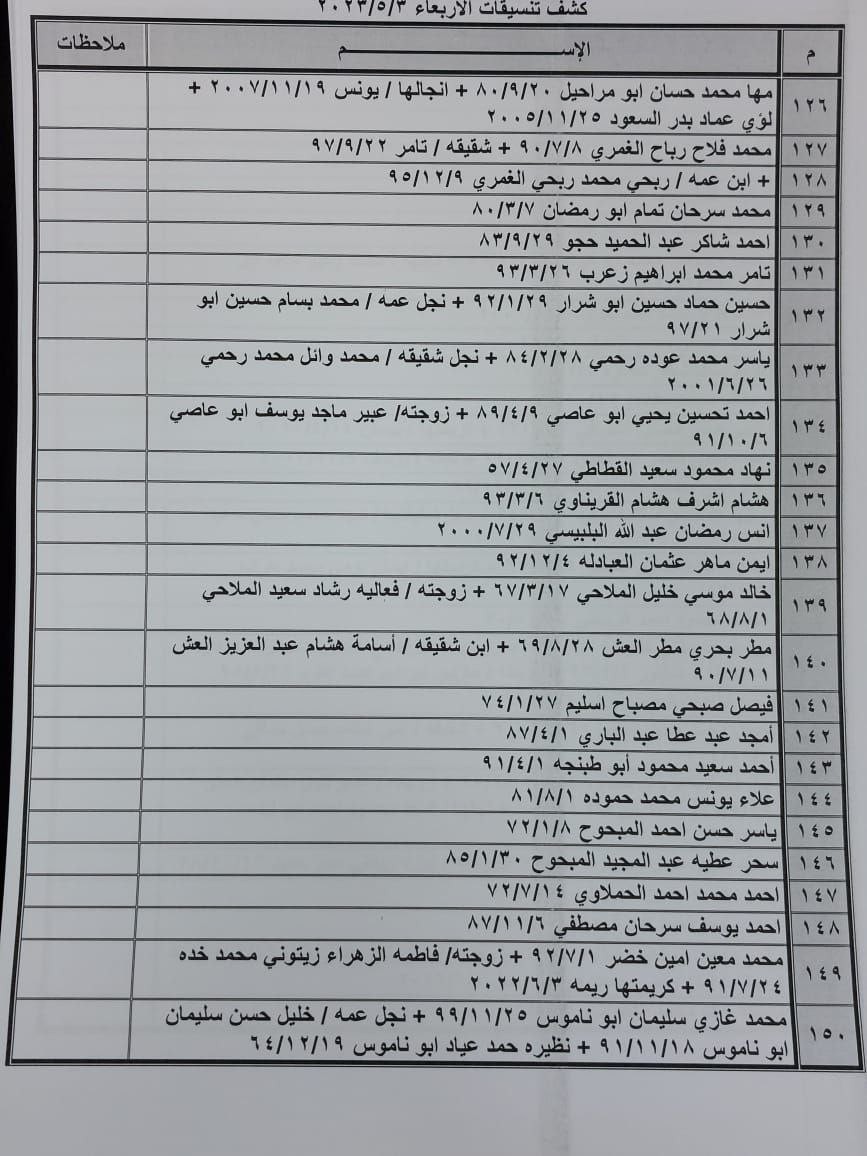 كشف تنسيقات الاربعاء ٢٠٢٣/٥/٣
م الإســـــم ملاحظات
١٢٦ مها محمد حسان ابو مراحيل ٨٠/٩/٢٠ + انجالها / يونس ٢٠٠٧/١١/١٩ +
لؤي عماد بدر السعود ٢٠٠٥/١١/٢٥
١٢٧ محمد فلاح رباح الغمري ٩٠/٧/٨ + شقيقه / تامر ٩٧/٩/٢٢
١٢٨ + ابن عمه / ربحي محمد ربحي الغمري ٩٥/١٢/٩
١٢٩ محمد سرحان تمام ابو رمضان ٨٠/٣/٧
١٣٠ احمد شاكر عبد الحميد حجو ٨٣/٩/٢٩
١٣١ تامر محمد ابراهيم زعرب ٩٣/٣/٢٦
١٣٢ حسين حماد حسين ابو شرار ٩٢/١/٢٩ + نجل عمه / محمد بسام حسين ابو
شرار ٩٧/٢١
١٣٣ ياسر محمد عوده رحمي ٨٤/٢/٢٨ + نجل شقيقه / محمد وائل محمد رحمي
٢٠٠١/٦/٢٦
١٣٤ احمد تحسين يحيي ابو عاصي ٨٩/٤/٩ + زوجته/ عبير ماجد يوسف ابو عاصي
٩١/١٠/٦
١٣٥ نهاد محمود سعيد القطاطي ٥٧/٤/٢٧
١٣٦ هشام اشرف هشام القريناوي ٩٣/٣/٦
١٣٧ انس رمضان عبد الله البلبيسي ٢٠٠٠/٧/٢٩
١٣٨ ايمن ماهر عثمان العبادله ٩٢/١٢/٤
١٣٩ خالد موسي خليل الملاحي ٦٧/٣/١٧ + زوجته / فعاليه رشاد سعيد الملاحي
٦٨/٨/١
١٤٠ مطر بحري مطر العش ٦٩/٨/٢٨ + ابن شقيقه / أسامة هشام عبد العزيز العش
٩٠/٧/١١
١٤١ فيصل صبحي مصباح اسليم ٧٤/١/٢٧
١٤٢ أمجد عبد عطا عبد الباري ٨٧/٤/١
١٤٣ أحمد سعيد محمود أبو طبنجه ٩١/٤/١
١٤٤ علاء يونس محمد حموده ٨١/٨/١
١٤٥ ياسر حسن احمد المبحوح ٧٢/١/٨
١٤٦ سحر عطيه عبد المجيد المبحوح ٨٥/١/٣٠
١٤٧ احمد محمد احمد الحملاوي ٧٢/٧/١٤
١٤٨ احمد يوسف سرحان مصطفي ٨٧/١١/٦
١٤٩ محمد معين امين خضر ٩٢/٧/١ + زوجته/ فاطمه الزهراء زيتوني محمد خده
٩١/٧/٢٤ + كريمتها ريمه ٢٠٢٢/٦/٣
١٥٠ محمد غازي سليمان ابو ناموس ٩٩/١١/٢٥ + نجل عمه / خليل حسن سليمان
ابو ناموس ٩١/١١/١٨ + نظيره حمد عياد ابو ناموس ٦٤/١٢/١٩